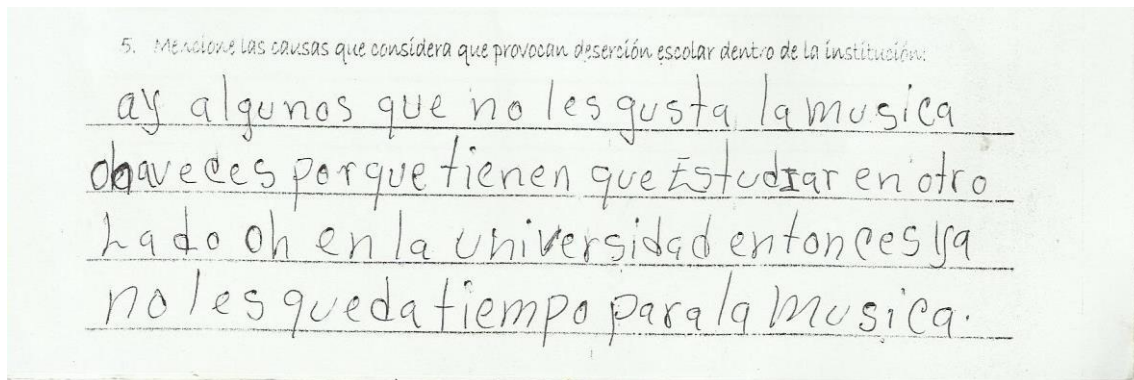 5. Mencione las causas que considera que provocan deserción escolar dentro de la institución:
ay algunos que no les gusta la musica
oh aveces porque tienen que Estudiar en otro
Lado oh en la universidad entonces ya
no les queda tiempo para la musica.